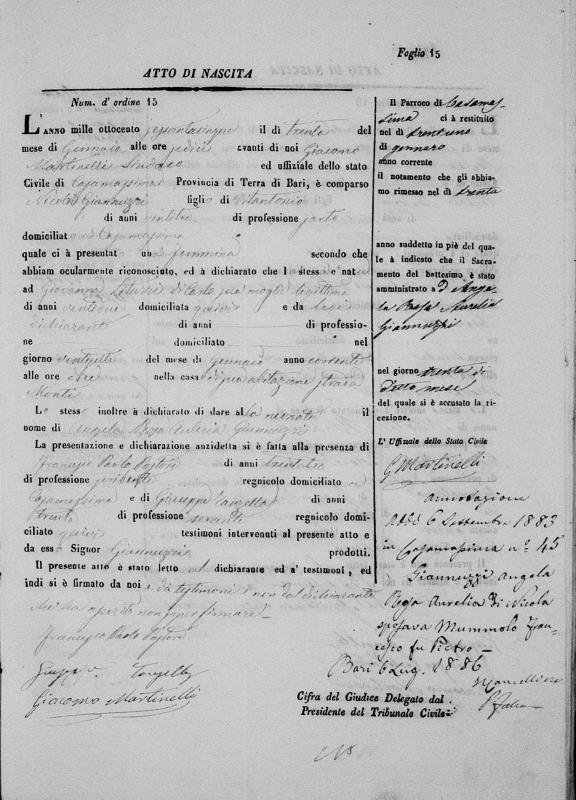 Foglio 15
ATTO DI NASCITA
Num. d' ordine 15
L'ANNO mille ottocento sessantacinque il dì trenta del
mese di Gennaio alle ore sedici avanti di noi Giacomo
Martinelli Sindaco ed uffiziale dello stato
Civile di Casamassima Provincia di Terra di Bari, è comparso
Nicola Giannuzzi figli di Vitantonio
di anni di professione sarto
domiciliat Casamassima
quale ci à presentat una femmina secondo che
abbiam ocularmente riconosciuto, ed à dichiarato che l stess è nat
ad Giovanna di Carlo sua moglie legittima
di anni ventidue domiciliata quivi e da lui
dichiarante di anni di professio-
ne domiciliato nel
giorno ventisette del mese di Gennaio anno corrente
alle ore dieci nella casa di sua abitazione strada
Monte
Lo stesso inoltre à dichiarato di dare alla neonata il
nome di Angela Rosa Aurelia Giannuzzi
La presentazione e dichiarazione anzidetta si è fatta alla presenza di
Francesco Paolo Pastore di anni trentatre
di professione regnicolo domiciliato a
Casamassima e di Giuseppe di anni
trenta di professione servente regnicolo domi-
ciliato quivi testimoni intervenuti al presente atto e
da esso Signor Giannuzzi prodotti.
Il presente atto è stato letto al dichiarante ed a' testimoni, ed
indi si è firmato da noi e da testimoni e non dal dichiarante
che ha asserito non saper firmare
Francesco Paolo Pastore
Giacomo Martinelli
Il Parroco di Casamas-
sima ci à restituito
nel dì trentuno
di gennaro
anno corrente
il notamento che gli abbia-
mo rimesso nel dì trenta
anno suddetto in piè del qua-
le à indicato che il Sacra-
mento del battesimo è stato
amministrato a D. Ange-
la Rosa Aurelia
Giannuzzi
nel giorno trenta di
detto mese
del quale si è accusato la ri-
cezione.
L' Uffiziale dello Stato Civile
G. Martinelli
Annotazione
Addì 6 Settembre 1883
in Casamassima n° 45
Giannuzzi Angela
Rosa Aurelia di Nicola
sposava Mummolo Fran-
cesco fu Pietro
Bari 6 Lug. 1886
Cifra del Giudice Delegato dal
Presidente del Tribunale Civile